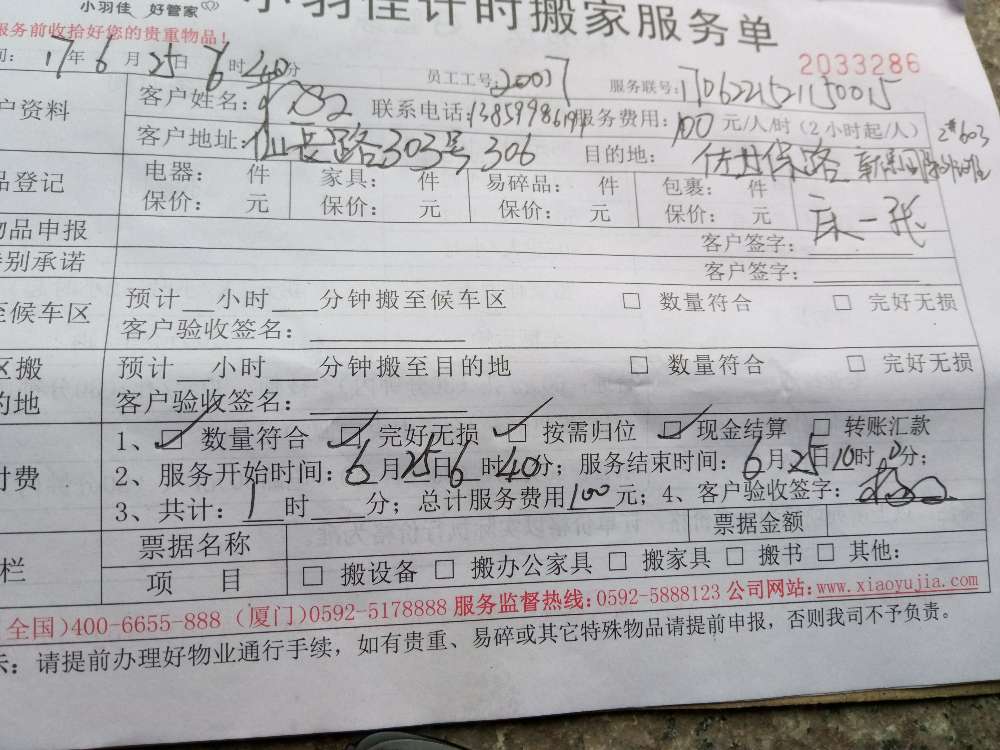 小羽佳 好管家
小羽佳计时搬家服务单
服务前收拾好您的贵重物品！
2033286
间: 17年6月25日6时40分 员工工号:20017 服务联号:1706221521150015
户资料 客户姓名: 联系电话: 服务费用:100元/人/时(2小时起/人)
客户地址:仙岳路303号306 目的地: 2#603
品登记 电器: 件 家具: 件 易碎品: 件 包裹: 件
保价: 元 保价: 元 保价: 元 保价: 元 床一张
物品申报 客户签字:
特别承诺 客户签字:
至候车区 预计__小时___分钟搬至候车区 □ 数量符合 □ 完好无损
客户验收签名:
区搬 预计__小时___分钟搬至目的地 □ 数量符合 □ 完好无损
的地 客户验收签名:
1、☑ 数量符合 ☑ 完好无损 ☑ 按需归位 ☑ 现金结算 □ 转账汇款
付费 2、服务开始时间:6月25日6时40分; 服务结束时间:6月25日10时0分;
3、共计:1时___分; 总计服务费用100元; 4、客户验收签字:
栏 票据名称 票据金额
项 目 □ 搬设备 □ 搬办公家具 □ 搬家具 □ 搬书 □ 其他:
全国)400-6655-888 (厦门)0592-5178888 服务监督热线:0592-5888123 公司网站:www.xiaoyujia.com
示: 请提前办理好物业通行手续，如有贵重、易碎或其它特殊物品请提前申报，否则我司不予负责。